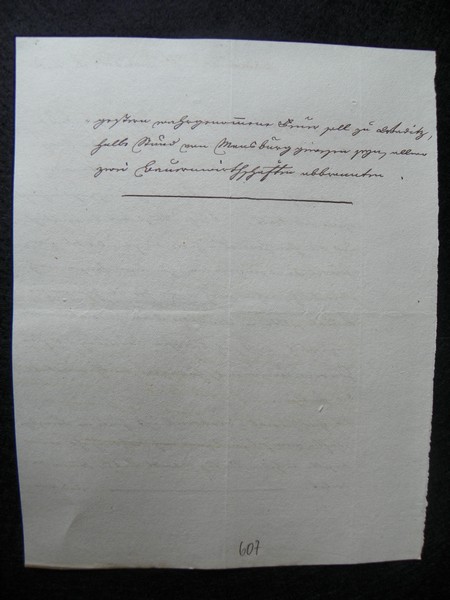 gestern wahrgenommene Feuer soll zu
halbe Stund von Merseburg gewesen seyn, allwo
zwei Bauernwirthschaften abbrannten.
607